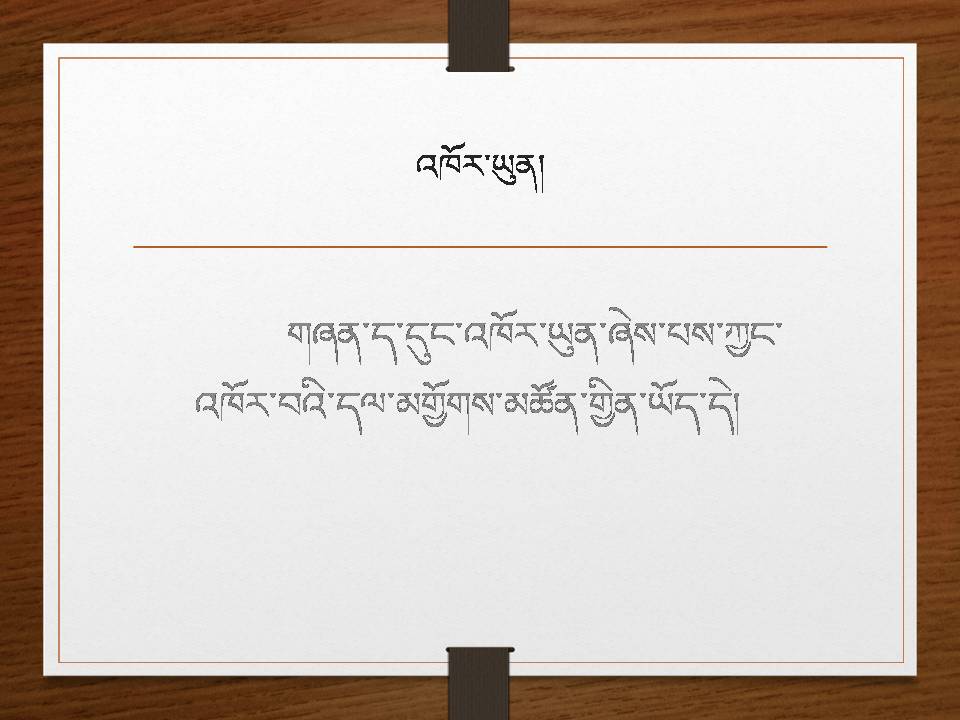 འཁོར་ཡུན།
གཞན་ད་དུང་འཁོར་ཡུན་ཞེས་པས་ཀྱང་
འཁོར་བའི་དལ་མགྱོགས་མཚོན་གྱིན་ཡོད་དེ།